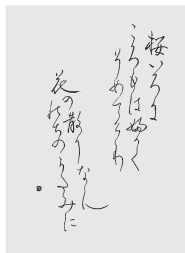 桜いろに
ころもは婦かく
そめてきむ
花の散りなん
のちのかたみに